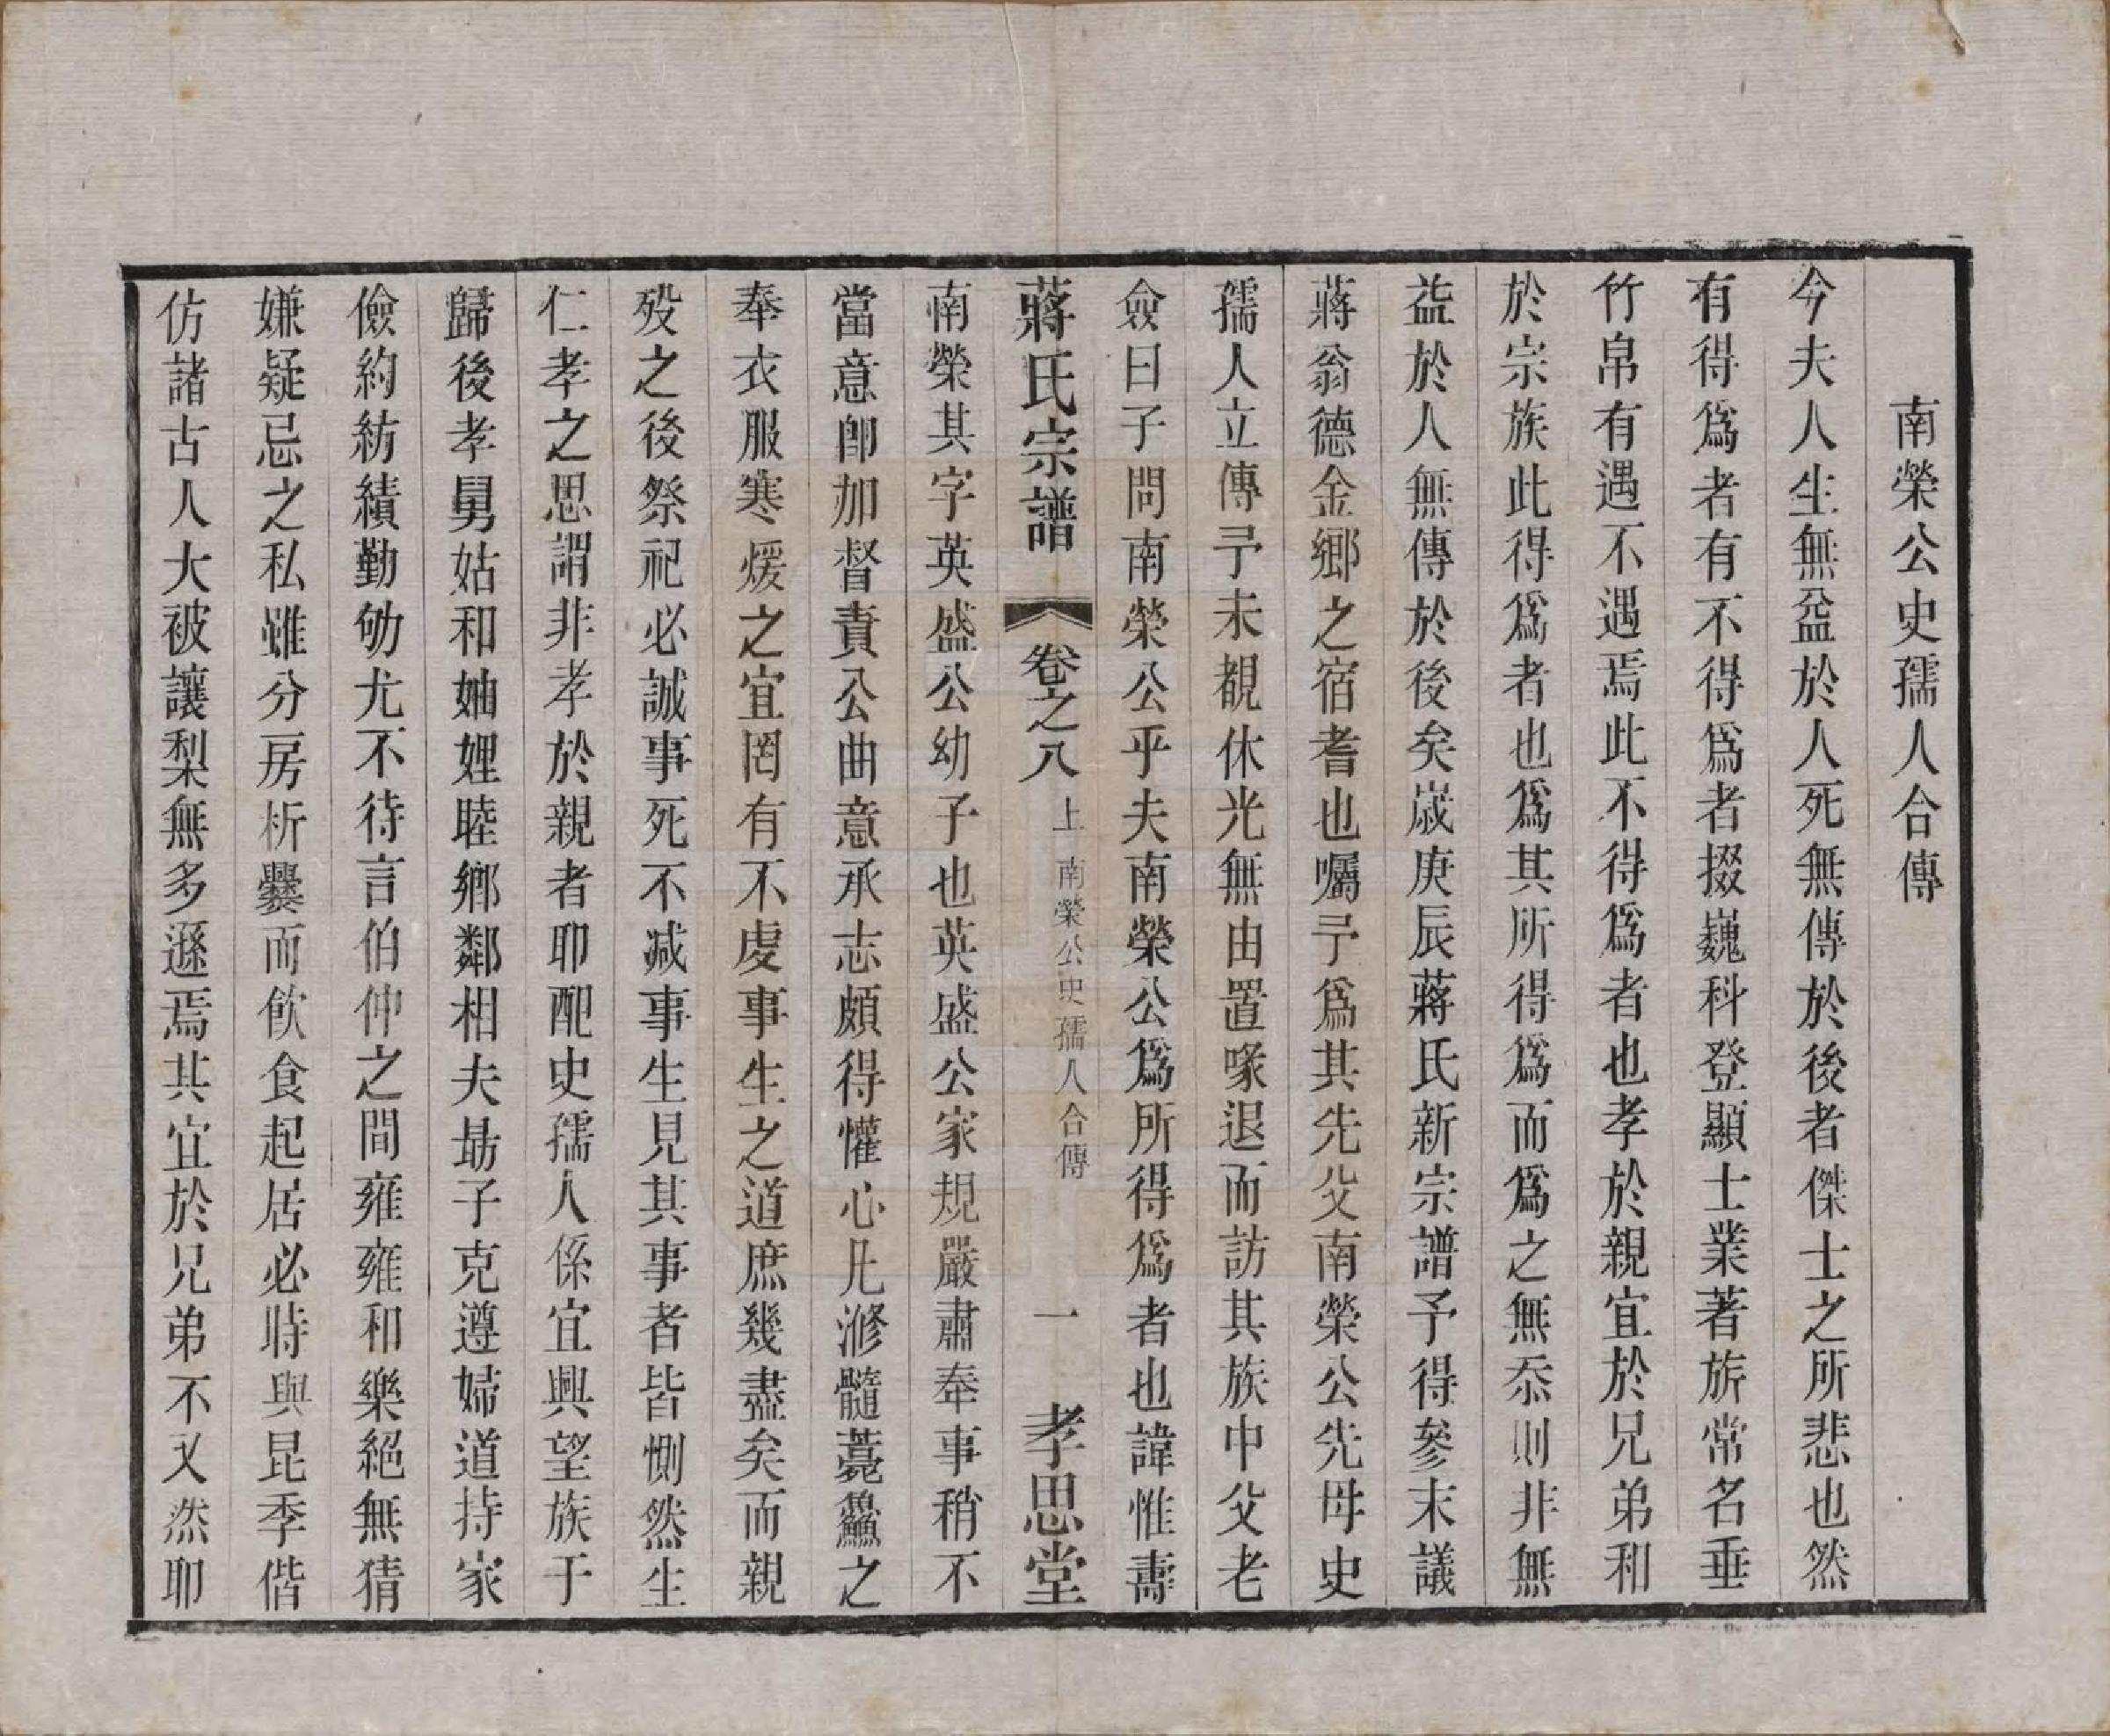 南榮公史孺人合傳
今夫人生無益於人死無傳於後者傑士之所悲也然
有得爲者有不得爲者掇巍科登顯士業著旂常名垂
竹帛有遇不遇焉此不得爲者也孝於親宜於兄弟和
於宗族此得爲者也爲其所得爲而爲之無忝則非無
益於人無傳於後矣嵗庚辰蔣氏新宗譜予得參末議
蔣翁德金鄉之宿耆也囑予爲其先父南榮公先母史
孺人立傳予未覩休光無由置喙退而訪其族中父老
僉曰子問南榮公乎夫南榮公爲所得爲者也諱惟壽
蔣氏宗譜 卷之八 上 南榮公史孺人合傳 一 孝思堂
南榮其字英盛公幼子也英盛公家規嚴肅奉事稍不
當意卽加督責公曲意承志頗得懽心凡滫髓薧鱻之
奉衣服寒煖之宜罔有不虔事生之道庶幾盡矣而親
歿之後祭祀必誠事死不減事生見其事者皆惻然生
仁孝之思謂非孝於親者耶配史孺人係宜興望族于
歸後孝舅姑和妯娌睦鄉鄰相夫勗子克遵婦道持家
儉約紡績勤劬尤不待言伯仲之間雍雍和樂絕無猜
嫌疑忌之私雖分房析爨而飮食起居必時與昆季偕
仿諸古人大被讓梨無多遜焉其宜於兄弟不又然耶